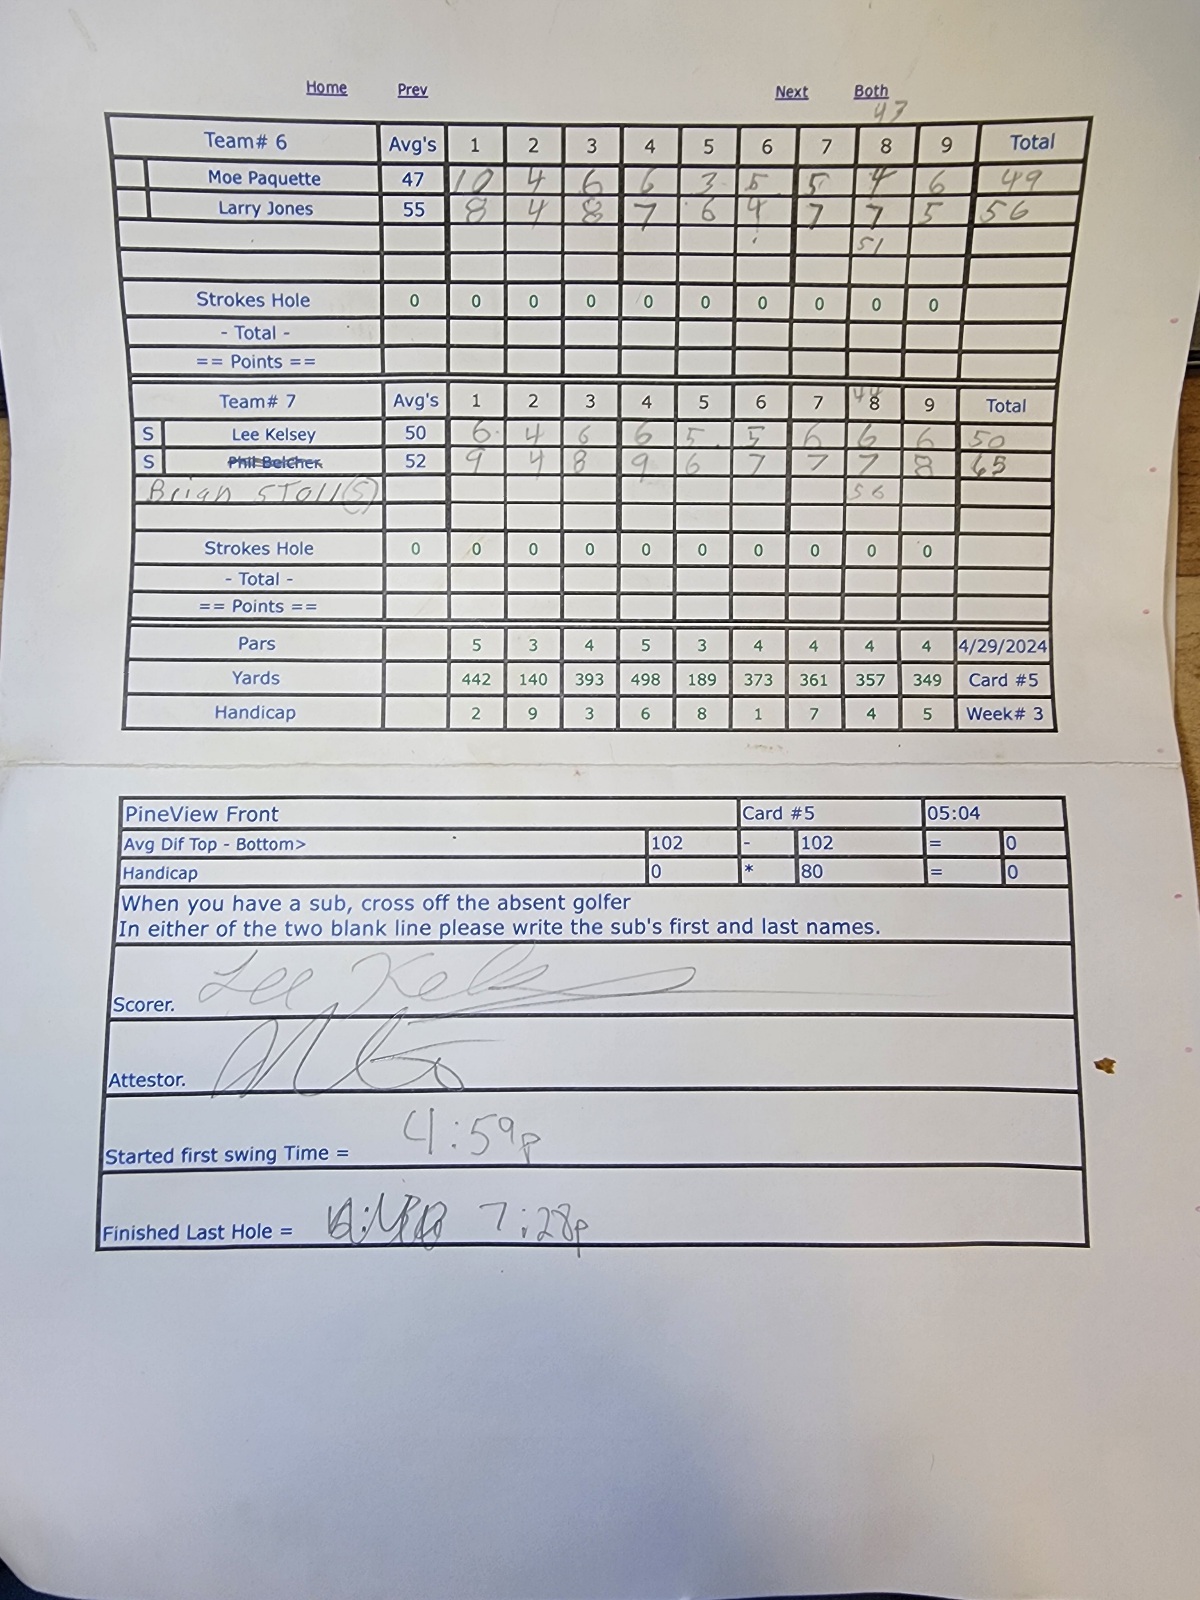 Home Prev Next Both
43
Team# 6 Avg's 1 2 3 4 5 6 7 8 9 Total
Moe Paquette 47 10 4 6 6 3 5 5 4 6 49
Larry Jones 55 8 4 8 7 6 4 7 7 5 56
51
Strokes Hole 0 0 0 0 0 0 0 0 0 0
- Total -
== Points ==
44
Team# 7 Avg's 1 2 3 4 5 6 7 8 9 Total
S Lee Kelsey 50 6 4 6 6 5 5 6 6 6 50
S Phil Belcher 52 9 4 8 9 6 7 7 7 8 65
Brian Stoll (S) 56
Strokes Hole 0 0 0 0 0 0 0 0 0 0
- Total -
== Points ==
Pars 5 3 4 5 3 4 4 4 4 4/29/2024
Yards 442 140 393 498 189 373 361 357 349 Card #5
Handicap 2 9 3 6 8 1 7 4 5 Week# 3
PineView Front Card #5 05:04
Avg Dif Top - Bottom> 102 - 102 = 0
Handicap 0 * 80 = 0
When you have a sub, cross off the absent golfer
In either of the two blank line please write the sub's first and last names.
Scorer. Lee Kelsey
Attestor.
Started first swing Time = 4:59p
Finished Last Hole = 7:28p